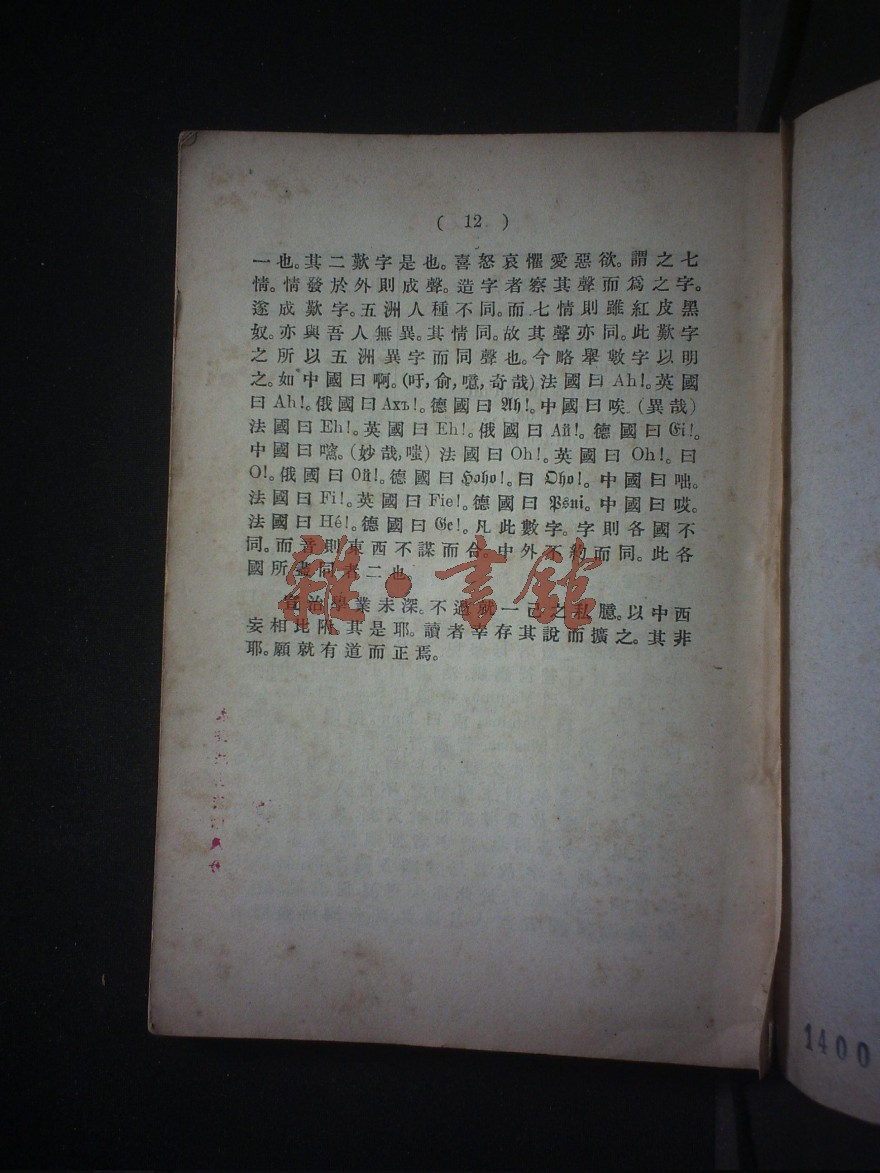 ( 12 )
一也。其二歎字是也。喜怒哀懼愛惡欲。謂之七
情。情發於外則成聲。造字者察其聲而爲之字。
遂成歎字。五洲人種不同。而七情則雖紅皮黑
奴。亦與吾人無異。其情同。故其聲亦同。此歎字
之所以五洲異字而同聲也。今略舉數字以明
之。如中國曰啊。(吁,俞,噫,奇哉)法國曰Ah!。英國
曰Ah!。俄國曰Ахъ!。德國曰Ah!。中國曰唉.(異哉)
法國曰Eh!。英國曰Eh!。俄國曰Ай!。德國曰Ei!。
中國曰嚆。(妙哉,嗤)法國曰Oh!。英國曰Oh!。曰
O!。俄國曰Ой!。德國曰Hoho!。曰Oho!。中國曰咄。
法國曰Fi!。英國曰Fie!。德國曰Pfui。中國曰哎。
法國曰Hé!。德國曰Ge!。凡此數字。字則各國不
同。而音則東西不謀而合。中外不約而同。此各
國所盡同者二也。
宣治學業未深。不過就一己之私臆。以中西
妄相比附。其是耶。讀者幸存其說而擴之。其非
耶。願就有道而正焉。
雜·書館
1400